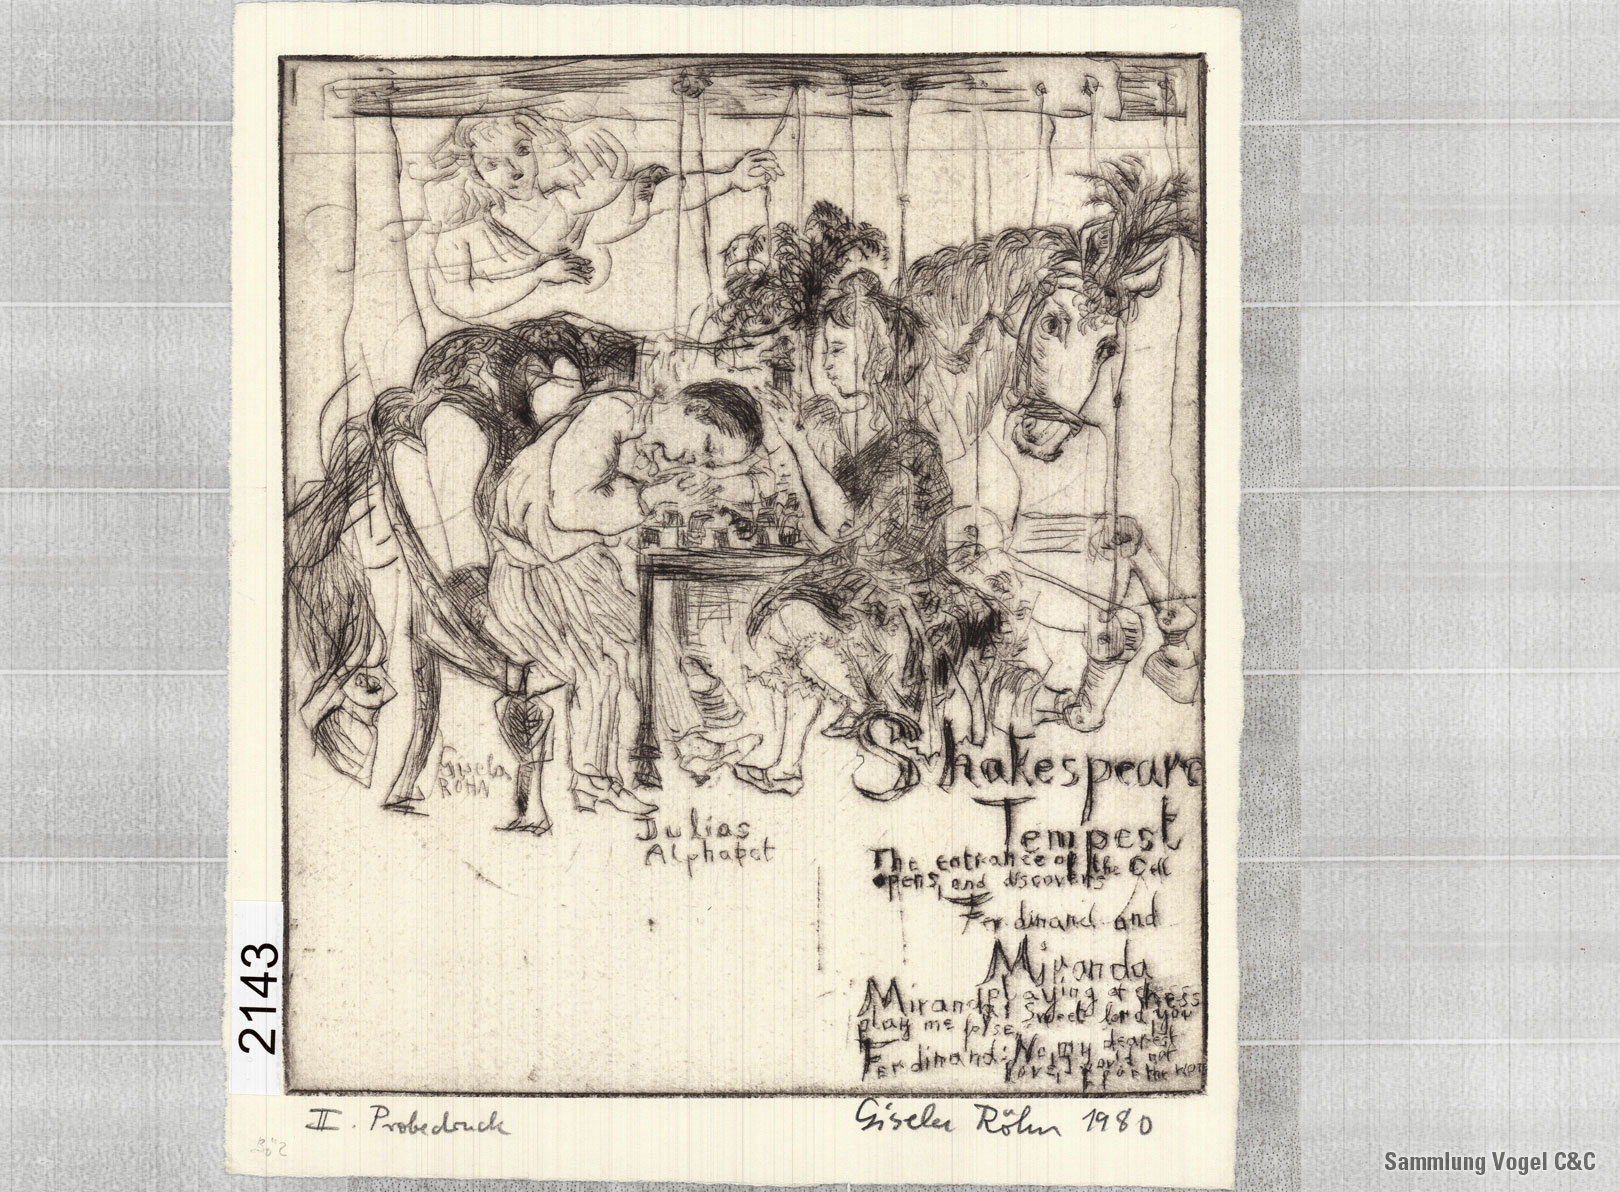 Gisela
RÖHN
Julias
Alphabet
Shakespeare
Tempest
The entrance of the Cell
opens, and discovers
Ferdinand and
Miranda
playing at chess
Miranda: Sweet lord you
play me false.
Ferdinand: No, my dearest
love, I would not
for the world
2143
II. Probedruck
Gisela Röhn 1980
Sammlung Vogel C&C